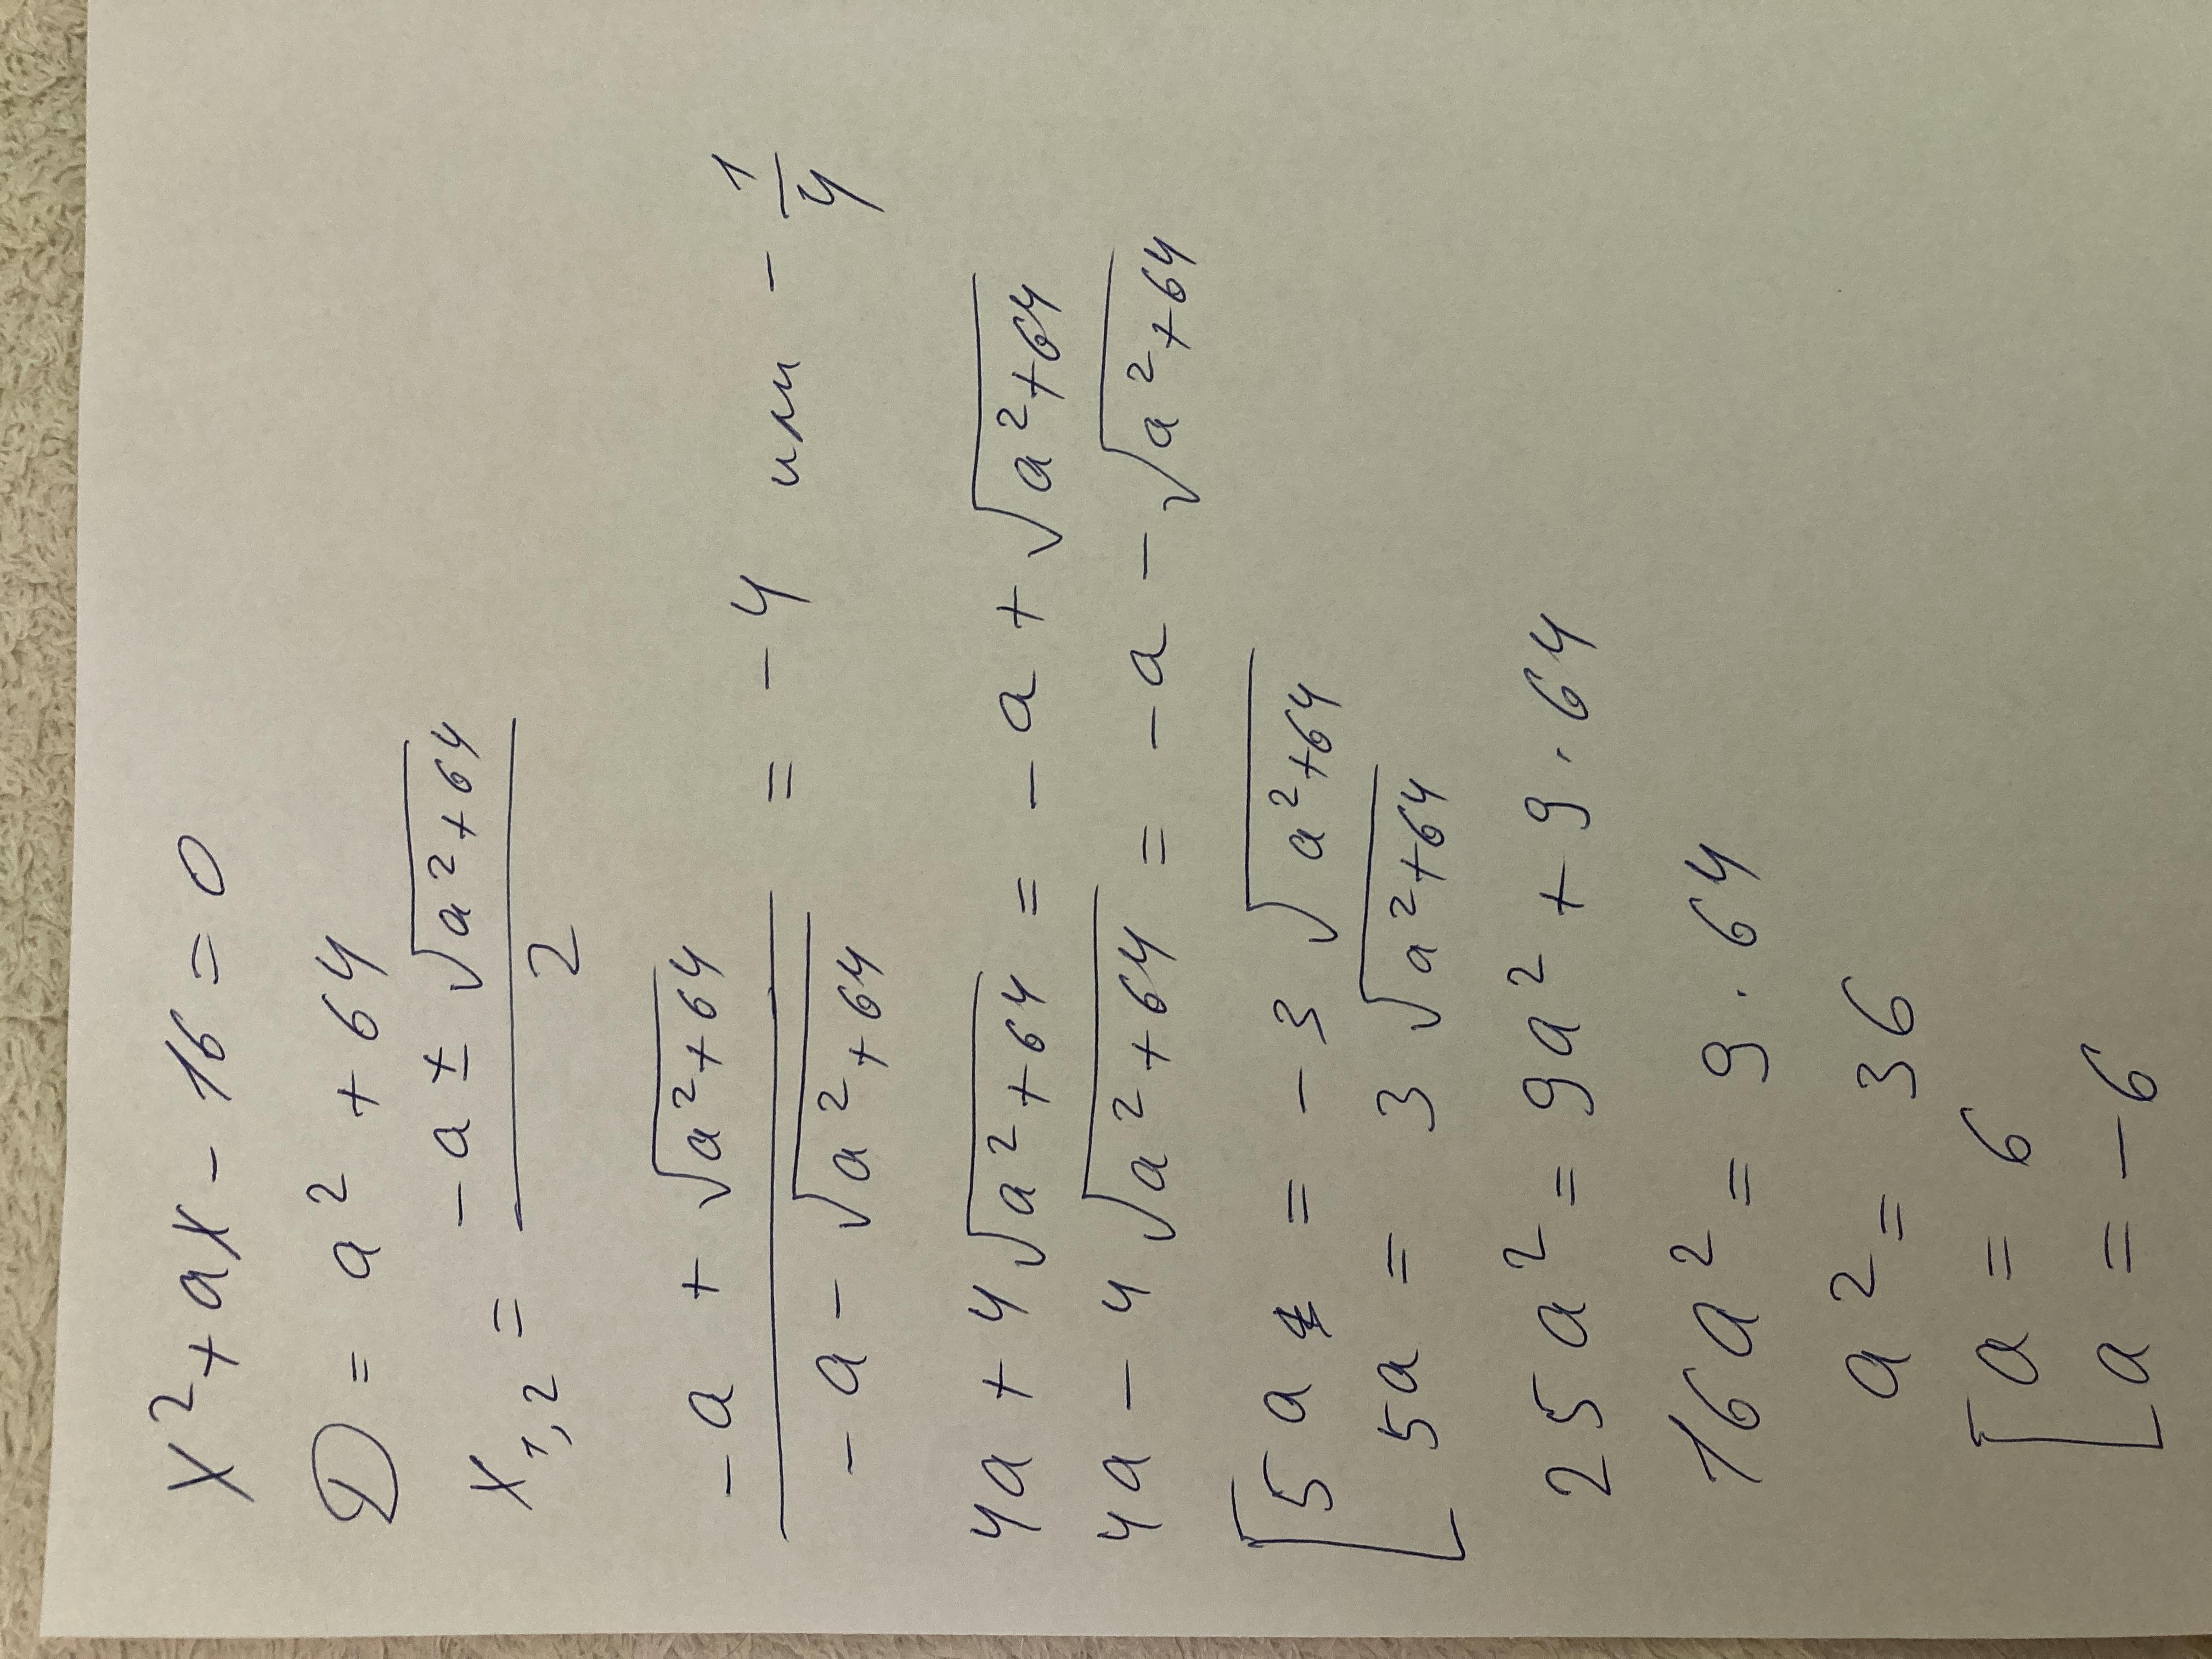 x² + ax - 16 = 0
D = a² + 64
x₁,₂ = (-a ± √(a² + 64)) / 2
(-a + √(a² + 64)) / (-a - √(a² + 64)) = -4 или -1/4
4a + 4√(a² + 64) = -a + √(a² + 64)
4a - 4√(a² + 64) = -a - √(a² + 64)
[ 5a = -3√(a² + 64)
[ 5a = 3√(a² + 64)
25a² = 9a² + 9·64
16a² = 9·64
a² = 36
[ a = 6
[ a = -6